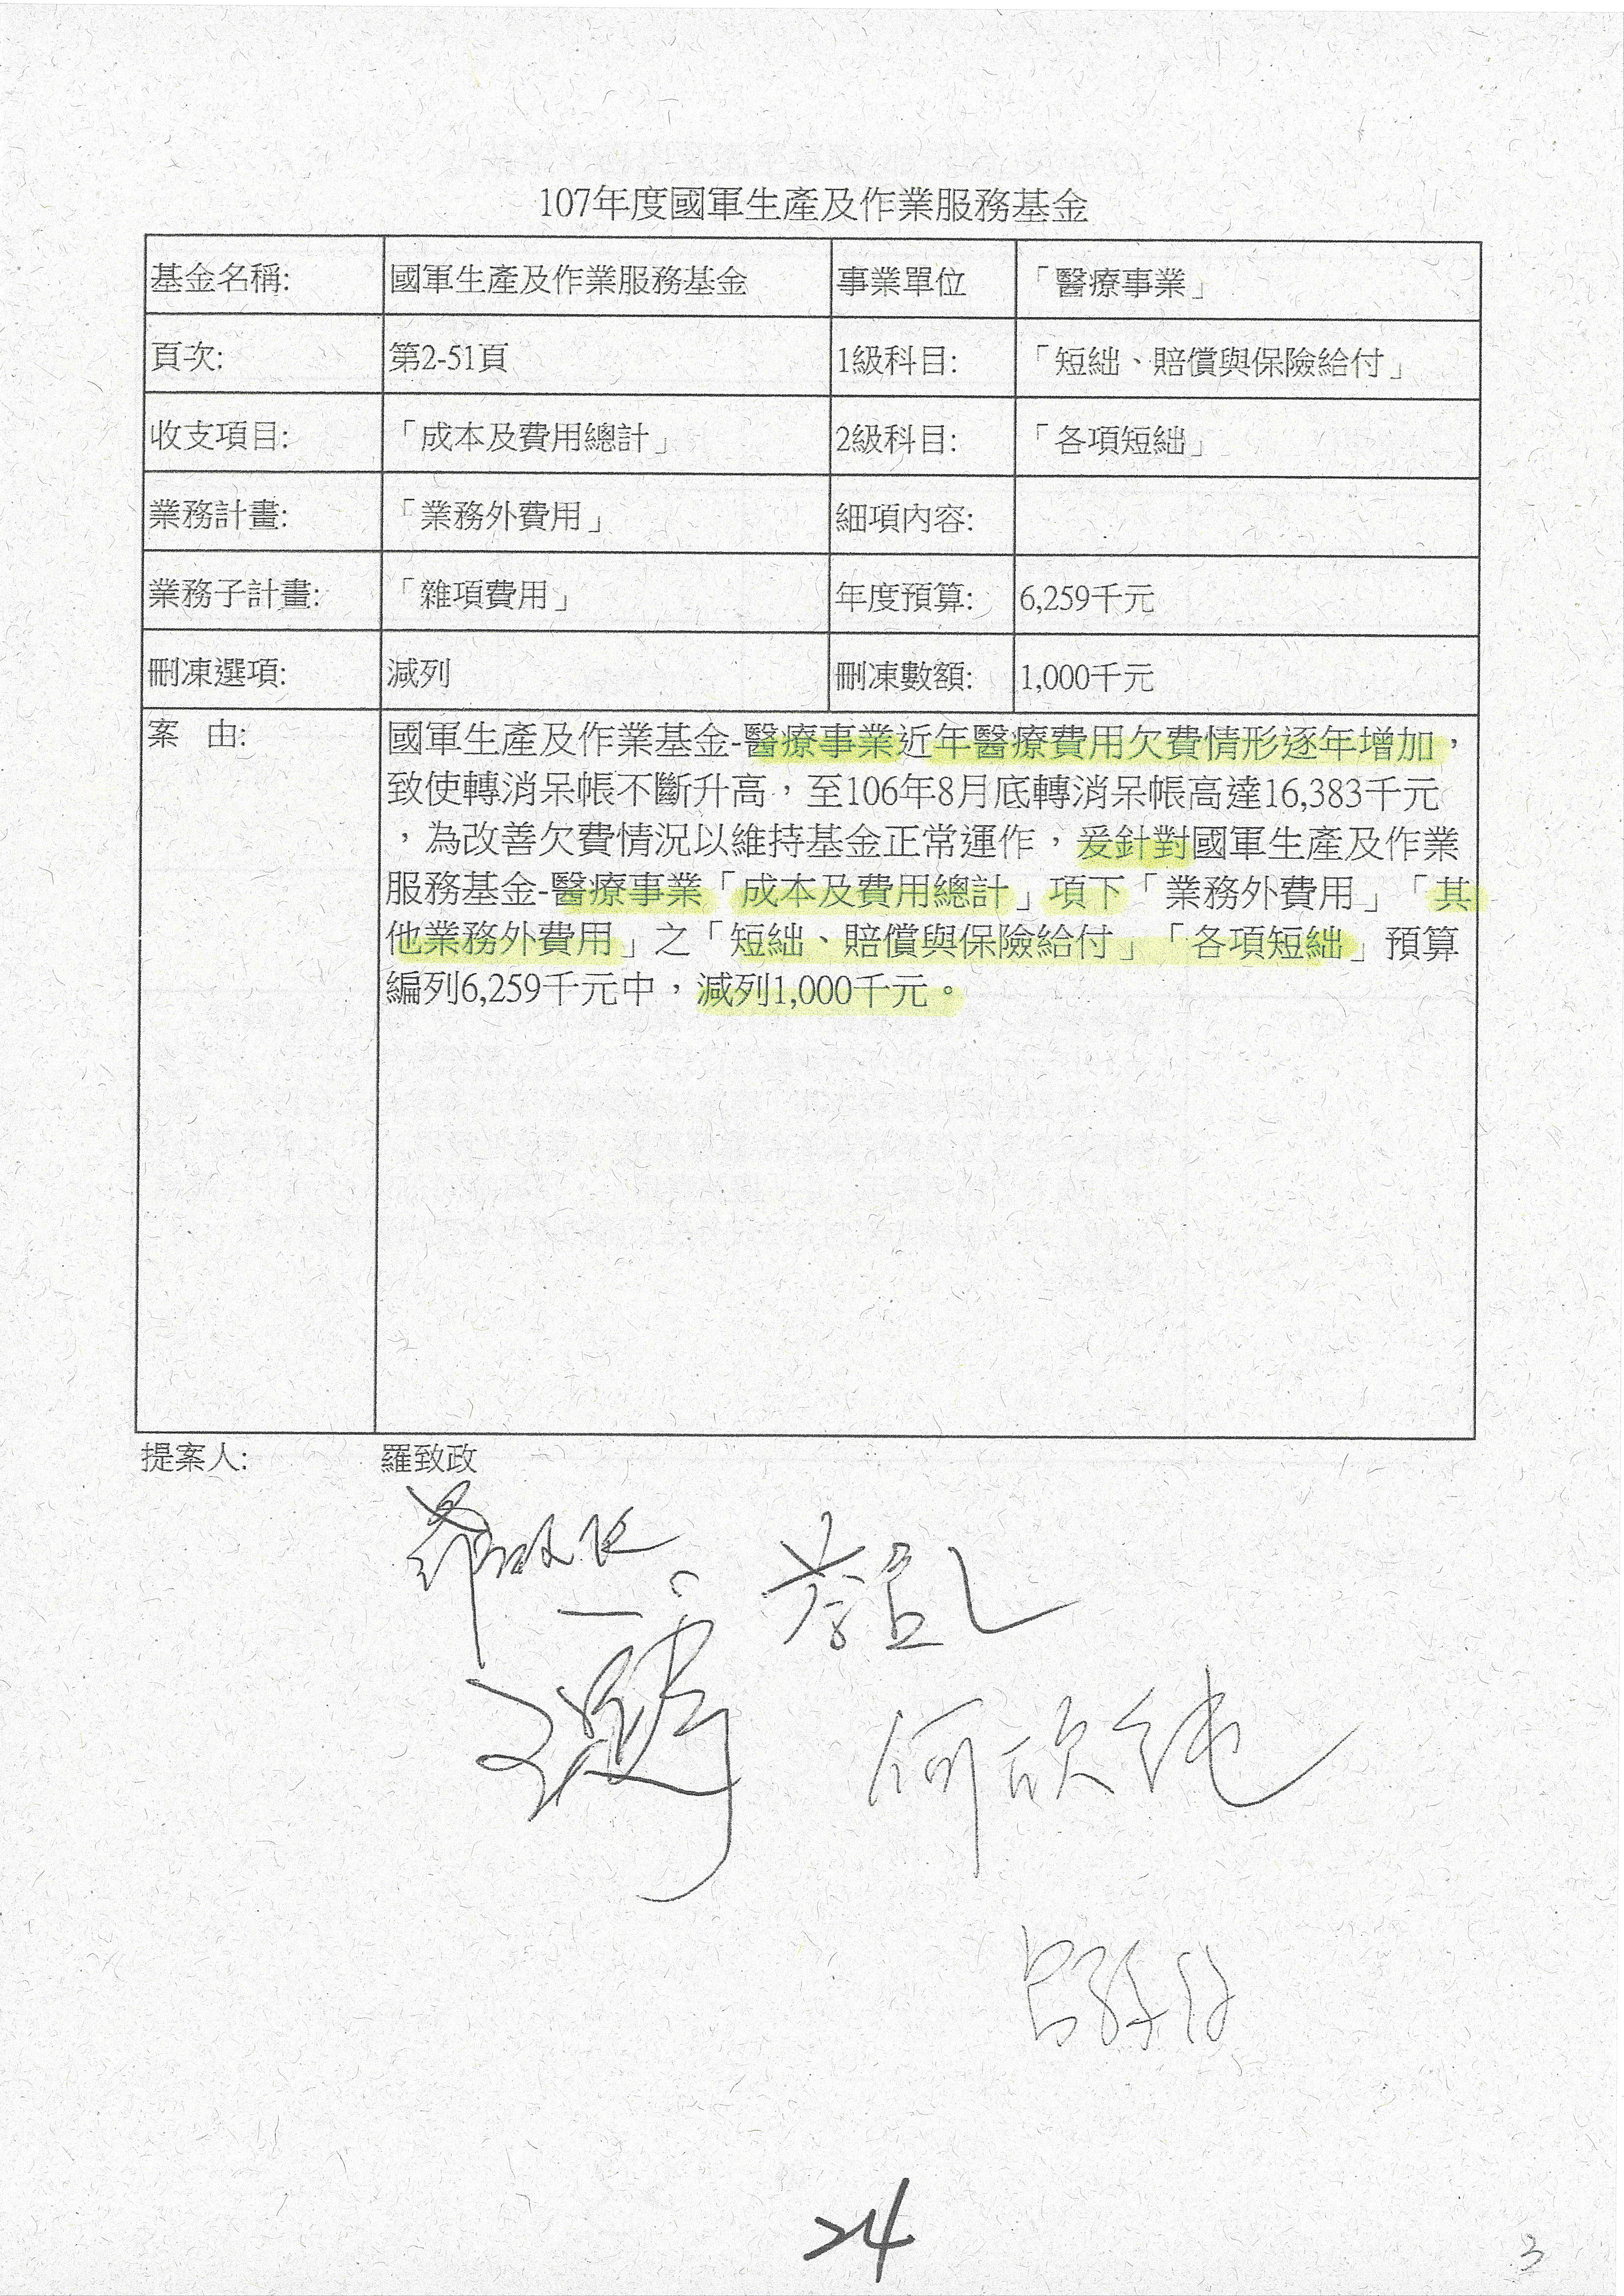 107年度國軍生產及作業服務基金
基金名稱: 國軍生產及作業服務基金 事業單位 「醫療事業」
頁次: 第2-51頁 1級科目: 「短絀、賠償與保險給付」
收支項目: 「成本及費用總計」 2級科目: 「各項短絀」
業務計畫: 「業務外費用」 細項內容:
業務子計畫: 「雜項費用」 年度預算: 6,259千元
刪凍選項: 減列 刪凍數額: 1,000千元
案 由: 國軍生產及作業基金-醫療事業近年醫療費用欠費情形逐年增加，
致使轉消呆帳不斷升高，至106年8月底轉消呆帳高達16,383千元
，為改善欠費情況以維持基金正常運作，爰針對國軍生產及作業
服務基金-醫療事業「成本及費用總計」項下「業務外費用」「其
他業務外費用」之「短絀、賠償與保險給付」「各項短絀」預算
編列6,259千元中，減列1,000千元。
提案人: 羅致政
何欣純
24
3